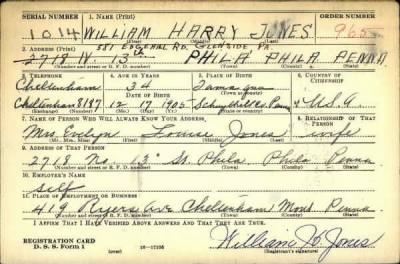 SERIAL NUMBER 1. NAME (Print) ORDER NUMBER
1014 WILLIAM HARRY JONES 965
581 EDGEHILL RD. GLENSIDE PA.
2. ADDRESS (Print)
2718 N. 13th PHILA PHILA PENNA.
(Number and street or R. F. D. number) (Town) (County) (State)
3. TELEPHONE 4. AGE IN YEARS 5. PLACE OF BIRTH 6. COUNTRY OF CITIZENSHIP
Cheltenham 34 Tamaqua
(Exchange) DATE OF BIRTH (Town or county)
Cheltenham 8187 12 17 1905 Schuylkill Co. Penna U.S.A.
(Number) (Mo.) (Day) (Yr.) (State or country)
7. NAME OF PERSON WHO WILL ALWAYS KNOW YOUR ADDRESS 8. RELATIONSHIP OF THAT PERSON
Mrs. Evelyn Louise Jones wife
(Mr., Mrs., Miss) (First) (Middle) (Last)
9. ADDRESS OF THAT PERSON
2718 No. 13" St. Phila. Phila Penna
(Number and street or R. F. D. number) (Town) (County) (State)
10. EMPLOYER'S NAME
Self
11. PLACE OF EMPLOYMENT OR BUSINESS
419 Ryers Ave Cheltenham Penna
(Number and street or R. F. D. number) (Town) (County) (State)
I AFFIRM THAT I HAVE VERIFIED ABOVE ANSWERS AND THAT THEY ARE TRUE.
REGISTRATION CARD
D. S. S. Form 1 16-17105 William H. Jones
(Registrant's signature)